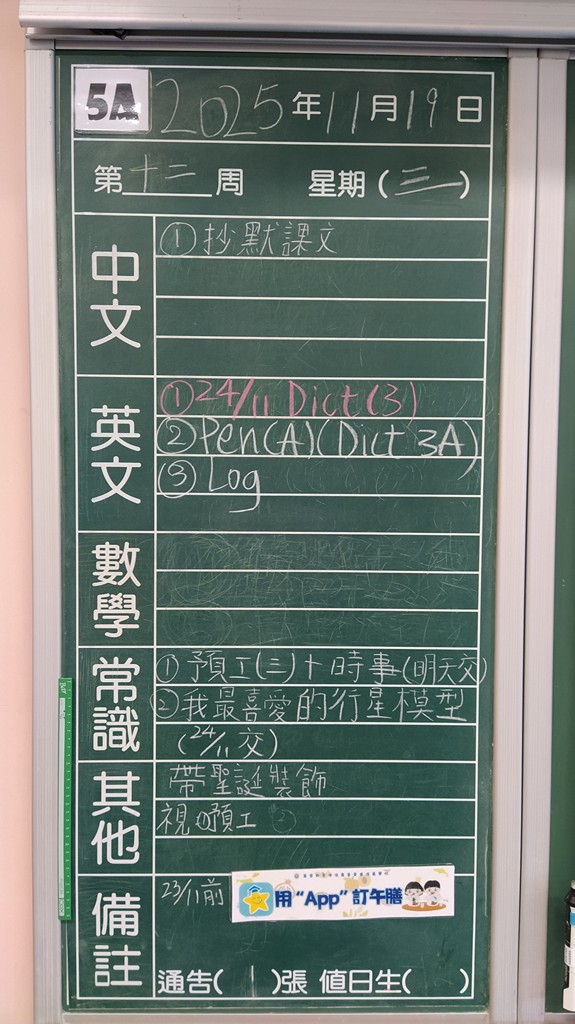 5A 2025年11月19日
第十二周 星期(三)
中文
①抄默課文
英文
①24/11 Dict(3)
②Pen(A)(Dict 3A)
③Log
數學
常識
①預工(三)+時事(明天交)
②我最喜愛的行星模型
(24/11交)
其他
帶聖誕裝飾
視預工②
備註
23/11前
用“App”訂午膳
通告(1)張 值日生( )